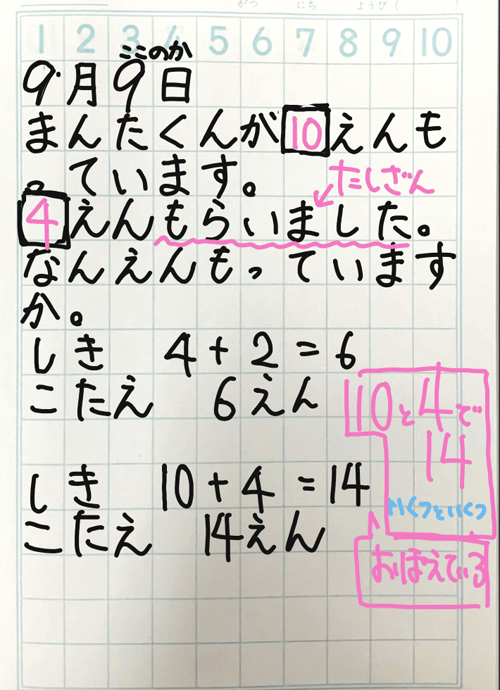 がつ にち ようび(
1 2 3 4 5 6 7 8 9 10
ここのか
9月9日
まんたくんが10えんも
っています。
たしざん
4えんもらいました。
なんえんもっています
か。
しき 4+2=6
こたえ 6えん
10と4で
14
いくつといくつ
しき 10+4=14
こたえ 14えん
おぼえている